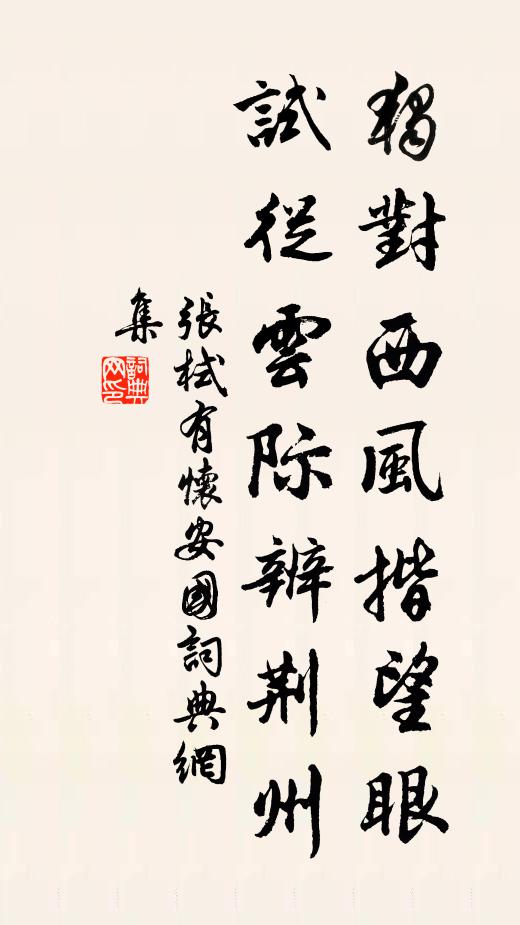 獨對西風揩望眼
試從雲际辨荆州
張栻有懷安國詞典網
集
詞典
网印